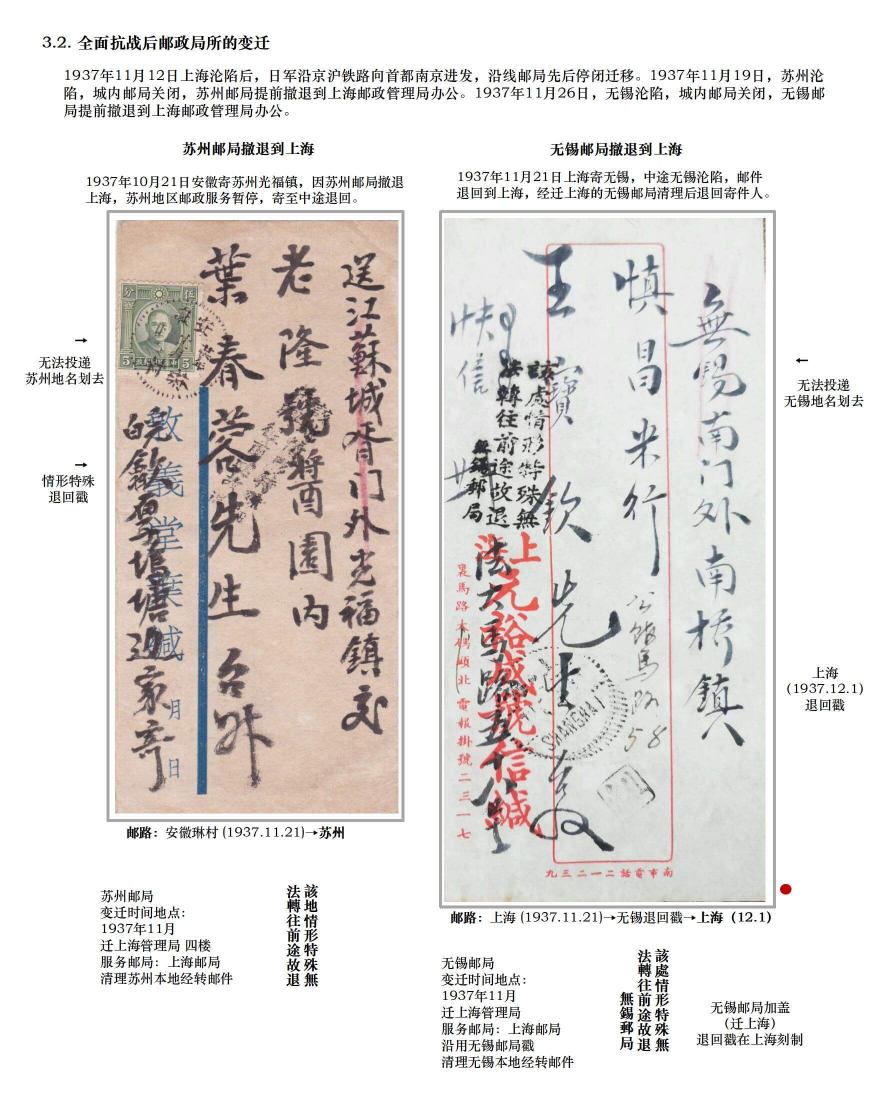 3.2. 全面抗战后邮政局所的变迁
1937年11月12日上海沦陷后，日军沿京沪铁路向首都南京进发，沿线邮局先后停闭迁移。1937年11月19日，苏州沦
陷，城内邮局关闭，苏州邮局提前撤退到上海邮政管理局办公。1937年11月26日，无锡沦陷，城内邮局关闭，无锡邮
局提前撤退到上海邮政管理局办公。
苏州邮局撤退到上海
1937年10月21日安徽寄苏州光福镇，因苏州邮局撤退
上海，苏州地区邮政服务暂停，寄至中途退回。
送江蘇城胥门外光福鎮交
老隆號醬園内
葉春蓉先生台升
敦義堂葉緘
月 日
分 伍
5 5
→
无法投递
苏州地名划去
→
情形特殊
退回戳
邮路：安徽琳村 (1937.11.21)→苏州
苏州邮局
变迁时间地点：
1937年11月
迁上海管理局 四楼
服务邮局：上海邮局
清理苏州本地经转邮件
該地情形特殊無
法轉往前途故退
无锡邮局撤退到上海
1937年11月21日上海寄无锡，中途无锡沦陷，邮件
退回到上海，经迁上海的无锡邮局清理后退回寄件人。
無锡南门外南橋鎮
慎昌米行
王寶欽先生
快信
該處情形特殊無
法轉往前途故退
無錫郵局
上海
元裕盛號信緘
裏馬路木碼頭北 電報掛號二三一七
58
SHANGHAI
南市電話二一二三九
←
无法投递
无锡地名划去
上海
(1937.12.1)
退回戳
邮路：上海 (1937.11.21)→无锡退回戳→上海（12.1）
无锡邮局
变迁时间地点：
1937年11月
迁上海管理局
服务邮局：上海邮局
沿用无锡邮局戳
清理无锡本地经转邮件
該處情形特殊無
法轉往前途故退
無錫郵局
无锡邮局加盖
（迁上海）
退回戳在上海刻制